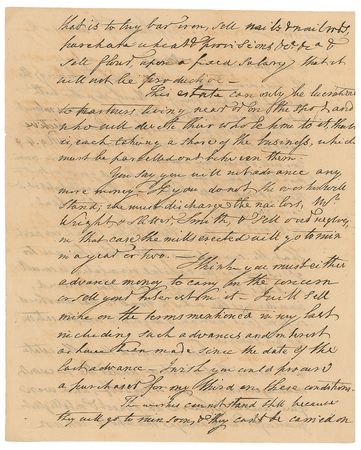 that is to buy bar iron, sell nails & nail rods,
purchase wheat & provisions &c &c &
sell flour upon a fixed salary that it
will not be productive —
This estate can only be lucrative
to partners living near it or on the spot and
who will devote their whole time to it that
is, each taking a share of the business, which
must be parcelled out between them —
You say you will not advance any
more money — If you do not the works will
stand, we must discharge the nailors, Mr
Wright & Smith, & sell our negroes,
in that case the mills erected will go to ruin
in a year or two. —
I think you must either
advance money to carry on the concern
or sell your interest in it — I will sell
mine on the terms mentioned in my last
including such advances and interest
as have been made since the date of the
last advance — I wish you could procure
a purchaser for my third on these conditions —
The works cannot stand still because
they will go to ruin soon, & they can't be carried on